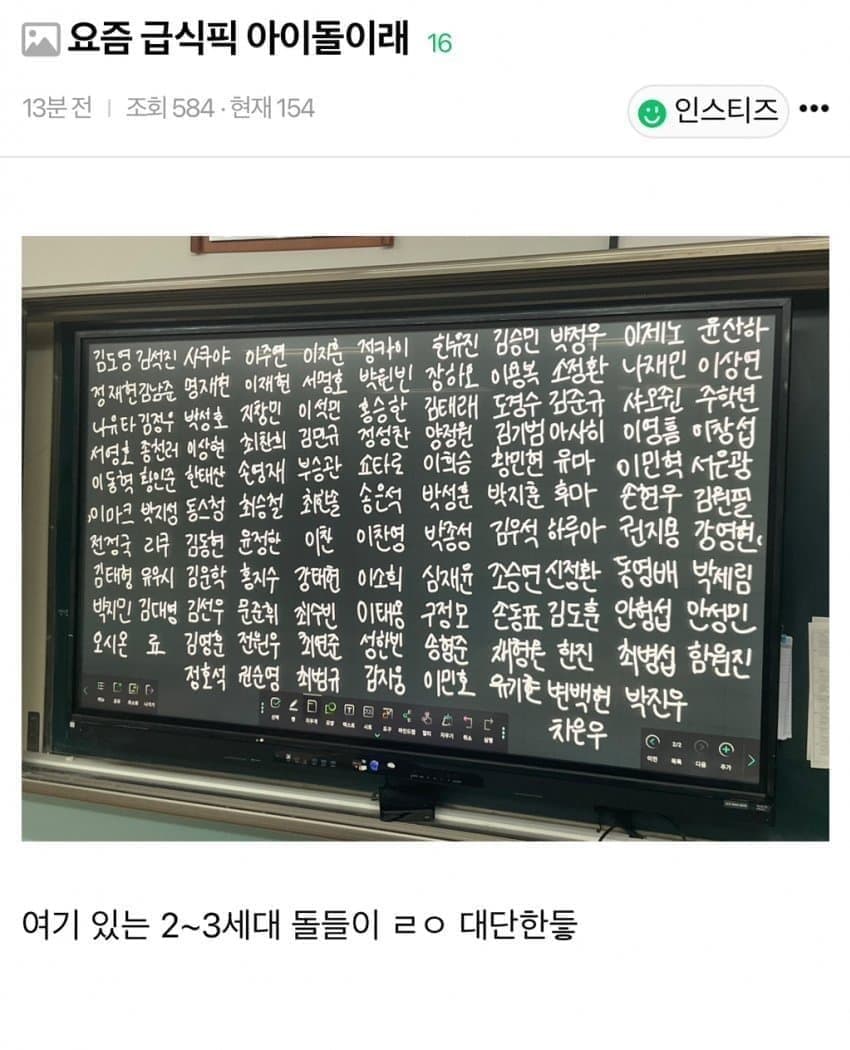 요즘 급식픽 아이돌이래 16
13분 전 | 조회 584 · 현재 154
인스티즈
김도영 김석진 사쿠야 이주연 이지훈 정카이 한유진 김승민 박정우 이제노 윤산하
정재현 김남준 명재현 이재현 서명호 박원빈 장하오 이용복 소정환 나재민 이상연
나유타 김정우 박성호 지창민 이석민 홍승한 김태래 도경수 김준규 샤오쥔 주학년
서영호 종천러 이상현 최찬희 김민규 정성찬 양정원 김기범 아사히 이영흠 이창섭
이동혁 황인준 한태산 손영재 부승관 쇼타로 이희승 황민현 유마 이민혁 서은광
이마크 박지성 동스청 최승철 최한솔 송은석 박성훈 박지훈 후마 손현우 김원필
전정국 리쿠 김동현 윤정한 이찬 이찬영 박종성 김우석 하루아 권지용 강영현
김태형 유우시 김운학 홍지수 강태현 이소희 심재윤 조승연 신정환 동영배 박제림
박지민 김대영 김선우 문준휘 최수빈 이태용 구정모 손동표 김도훈 안형섭 안성민
오시온 료 김영훈 전원우 최연준 성한빈 송형준 채형원 한진 최병섭 함원진
정호석 권순영 최범규 김지웅 이민호 유기현 변백현 박진우
차은우
선택 펜 지우개 도형 텍스트 시트 도구 마인드맵 멀티 지우기 취소 설정
이전 2/2 목록 다음 추가
여기 있는 2~3세대 돌들이 ㄹㅇ 대단한듷